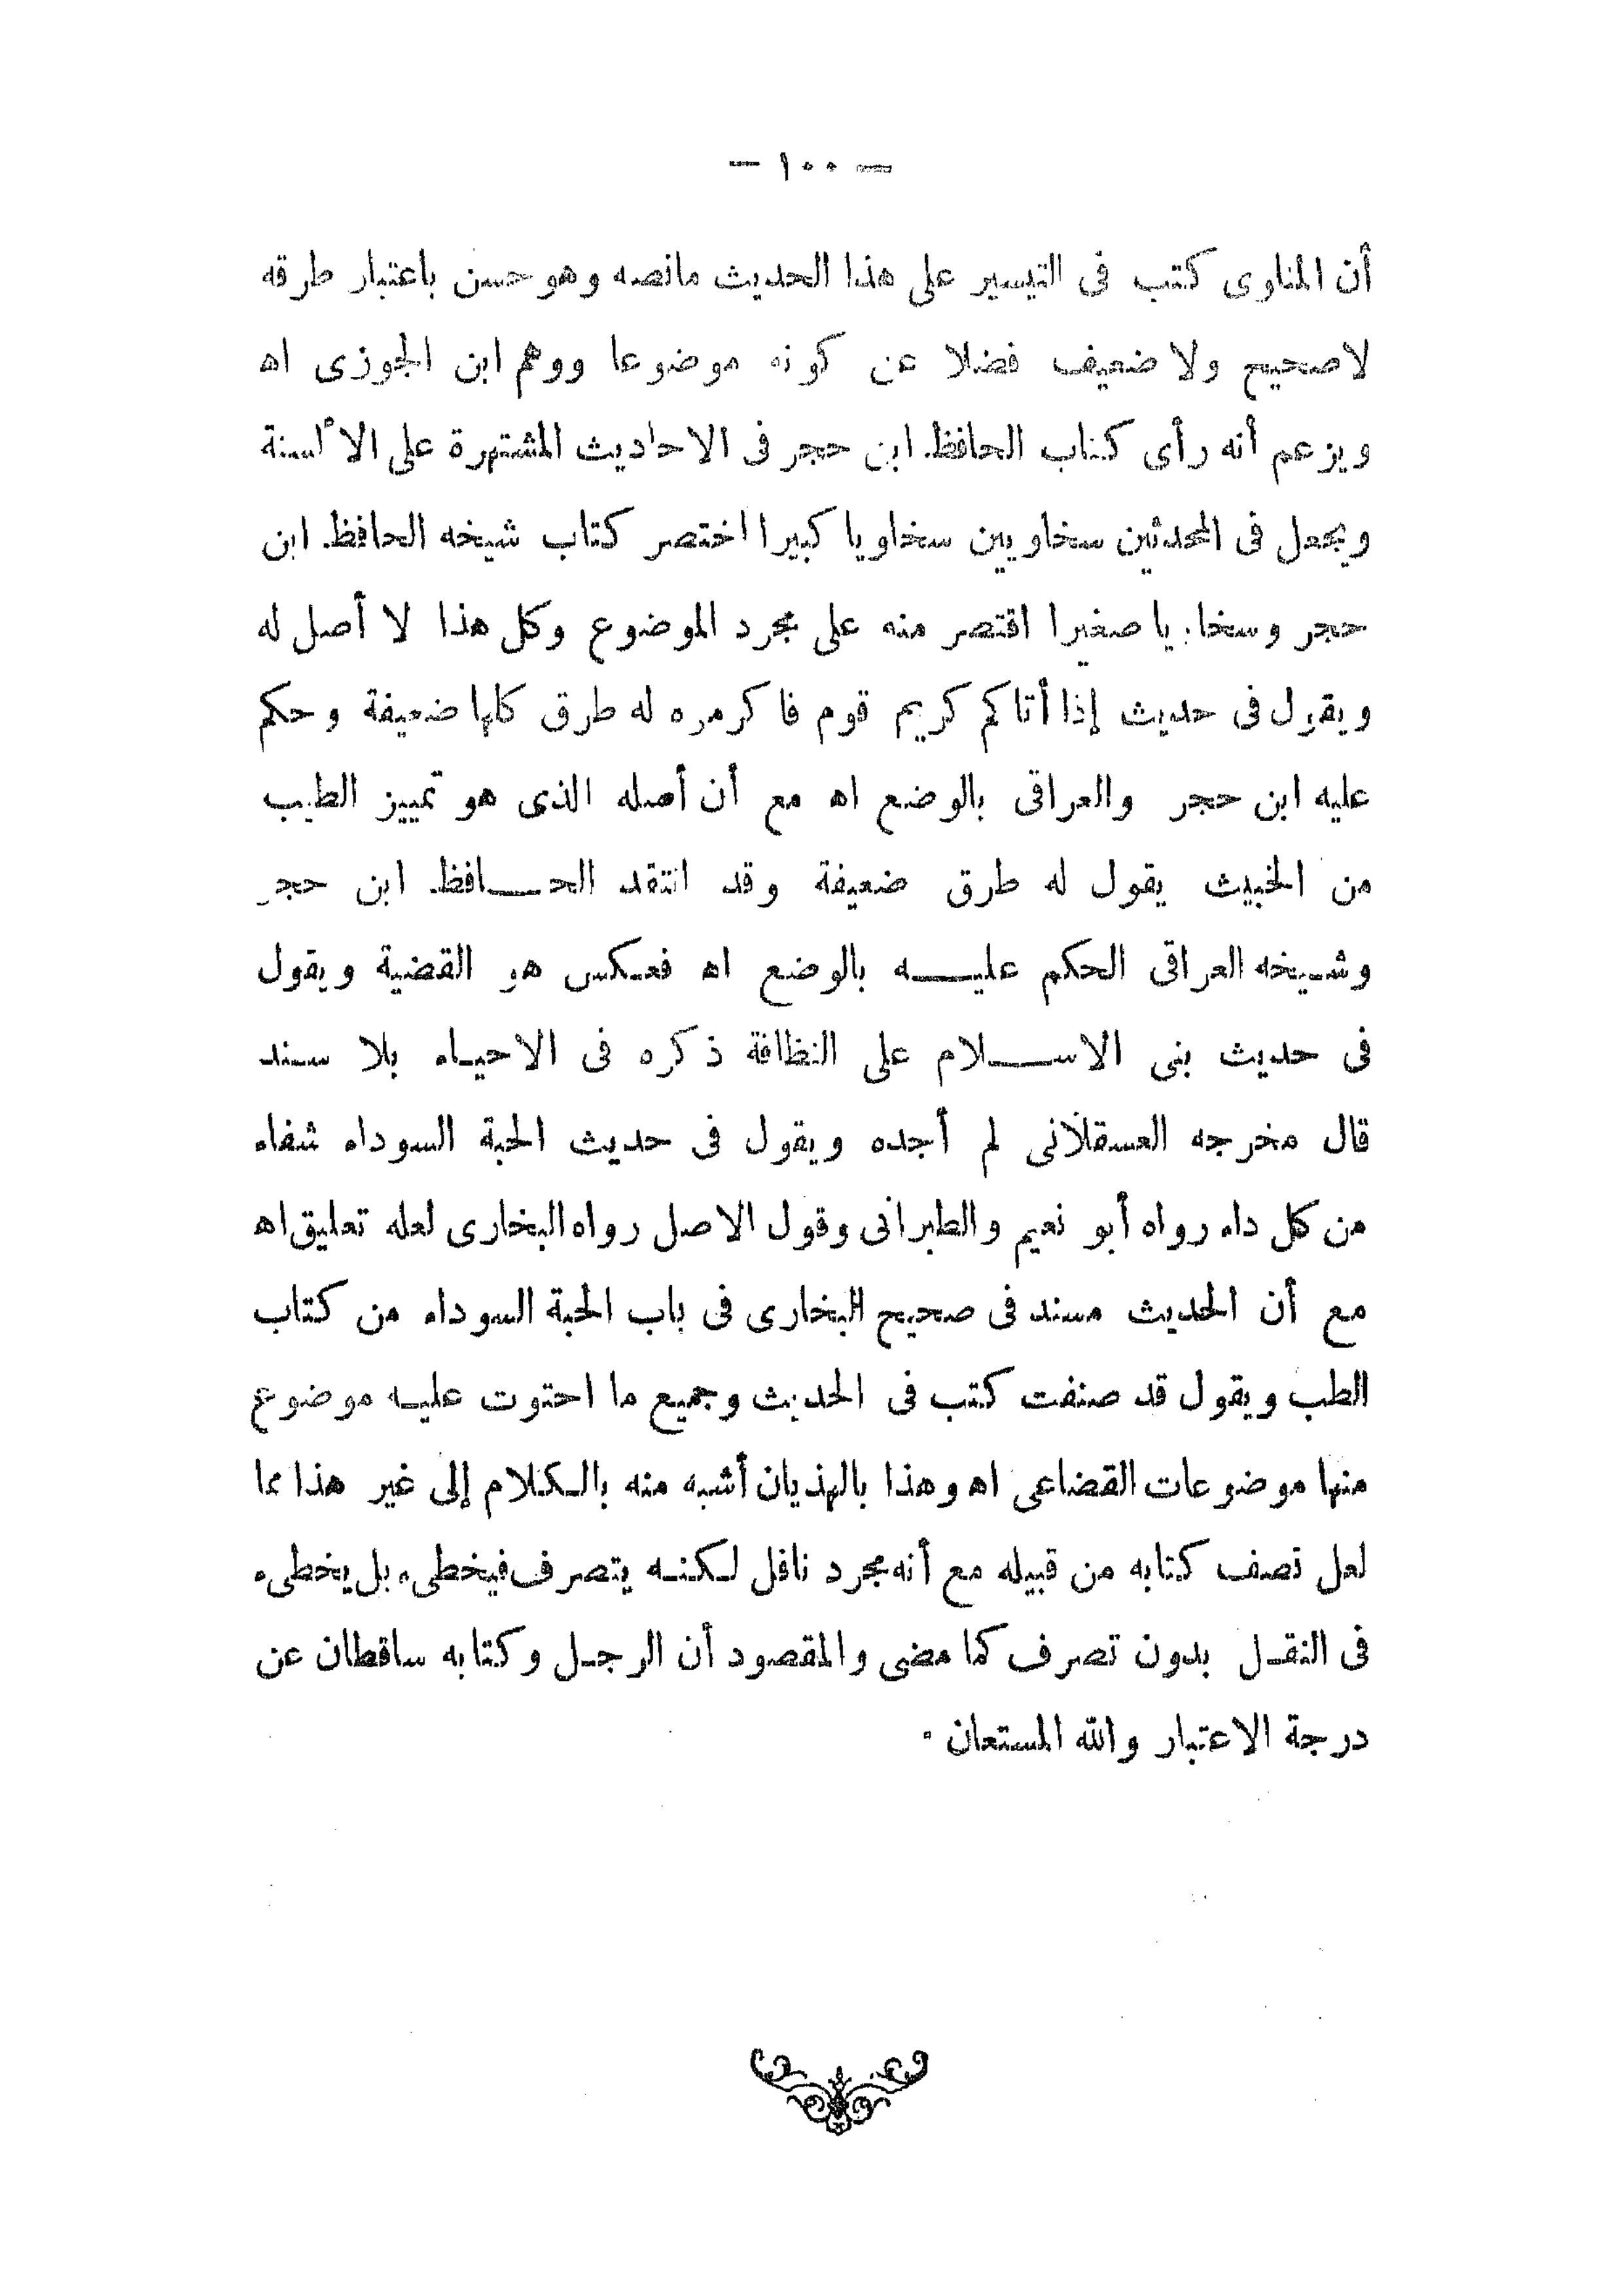 — ١٠٠ —
أن المناوى كتب فى التيسير على هذا الحديث مانصه وهو حسن باعتبار طرقه
لاصحيح ولا ضعيف فضلا عن كونه موضوعا ووهم ابن الجوزى اه
ويزعم أنه رأى كتاب الحافظ ابن حجر فى الاحاديث المشتهرة على الألسنة
ويجعل فى المحدثين سخاويين سخاويا كبيرا اختصر كتاب شيخه الحافظ ابن
حجر وسخاويا صغيرا اقتصر منه على مجرد الموضوع وكل هذا لا أصل له
ويقول فى حديث إذا أتاكم كريم قوم فاكرموه له طرق كلها ضعيفة وحكم
عليه ابن حجر والعراقى بالوضع اه مع أن أصله الذى هو تمييز الطيب
من الخبيث يقول له طرق ضعيفة وقد انتقد الحافظ ابن حجر
وشيخه العراقى الحكم عليه بالوضع اه فعكس هو القضية ويقول
فى حديث بنى الاسلام على النظافة ذكره فى الاحياء بلا سند
قال مخرجه العسقلانى لم أجده ويقول فى حديث الحبة السوداء شفاء
من كل داء رواه أبو نعيم والطبرانى وقول الاصل رواه البخارى لعله تعليق اه
مع أن الحديث مسند فى صحيح البخارى فى باب الحبة السوداء من كتاب
الطب ويقول قد صنفت كتب فى الحديث وجميع ما احتوت عليه موضوع
منها موضوعات القضاعى اه وهذا بالهذيان أشبه منه بالكلام إلى غير هذا مما
لعل نصف كتابه من قبيله مع أنه مجرد ناقل لكنه يتصرف فيخطىء بل يخطىء
فى النقل بدون تصرف كما مضى والمقصود أن الرجل وكتابه ساقطان عن
درجة الاعتبار والله المستعان .